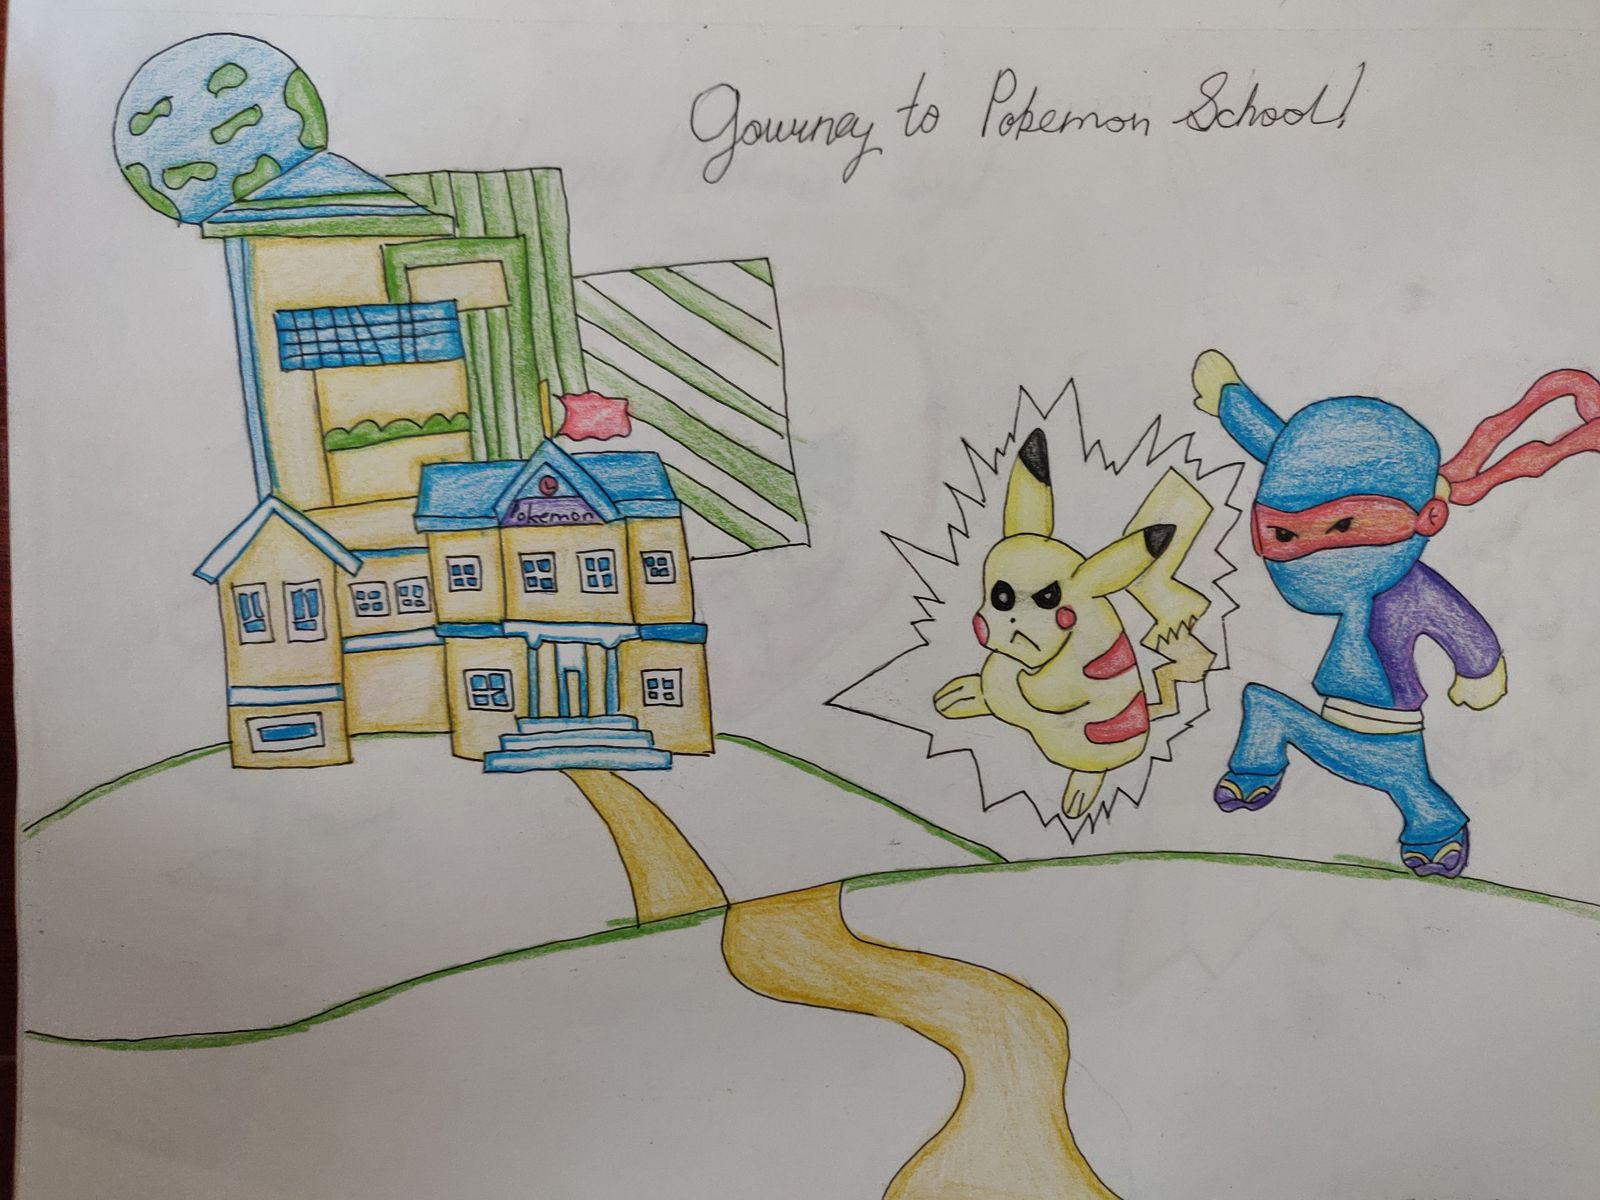 Journey to Pokemon School!
Pokemon